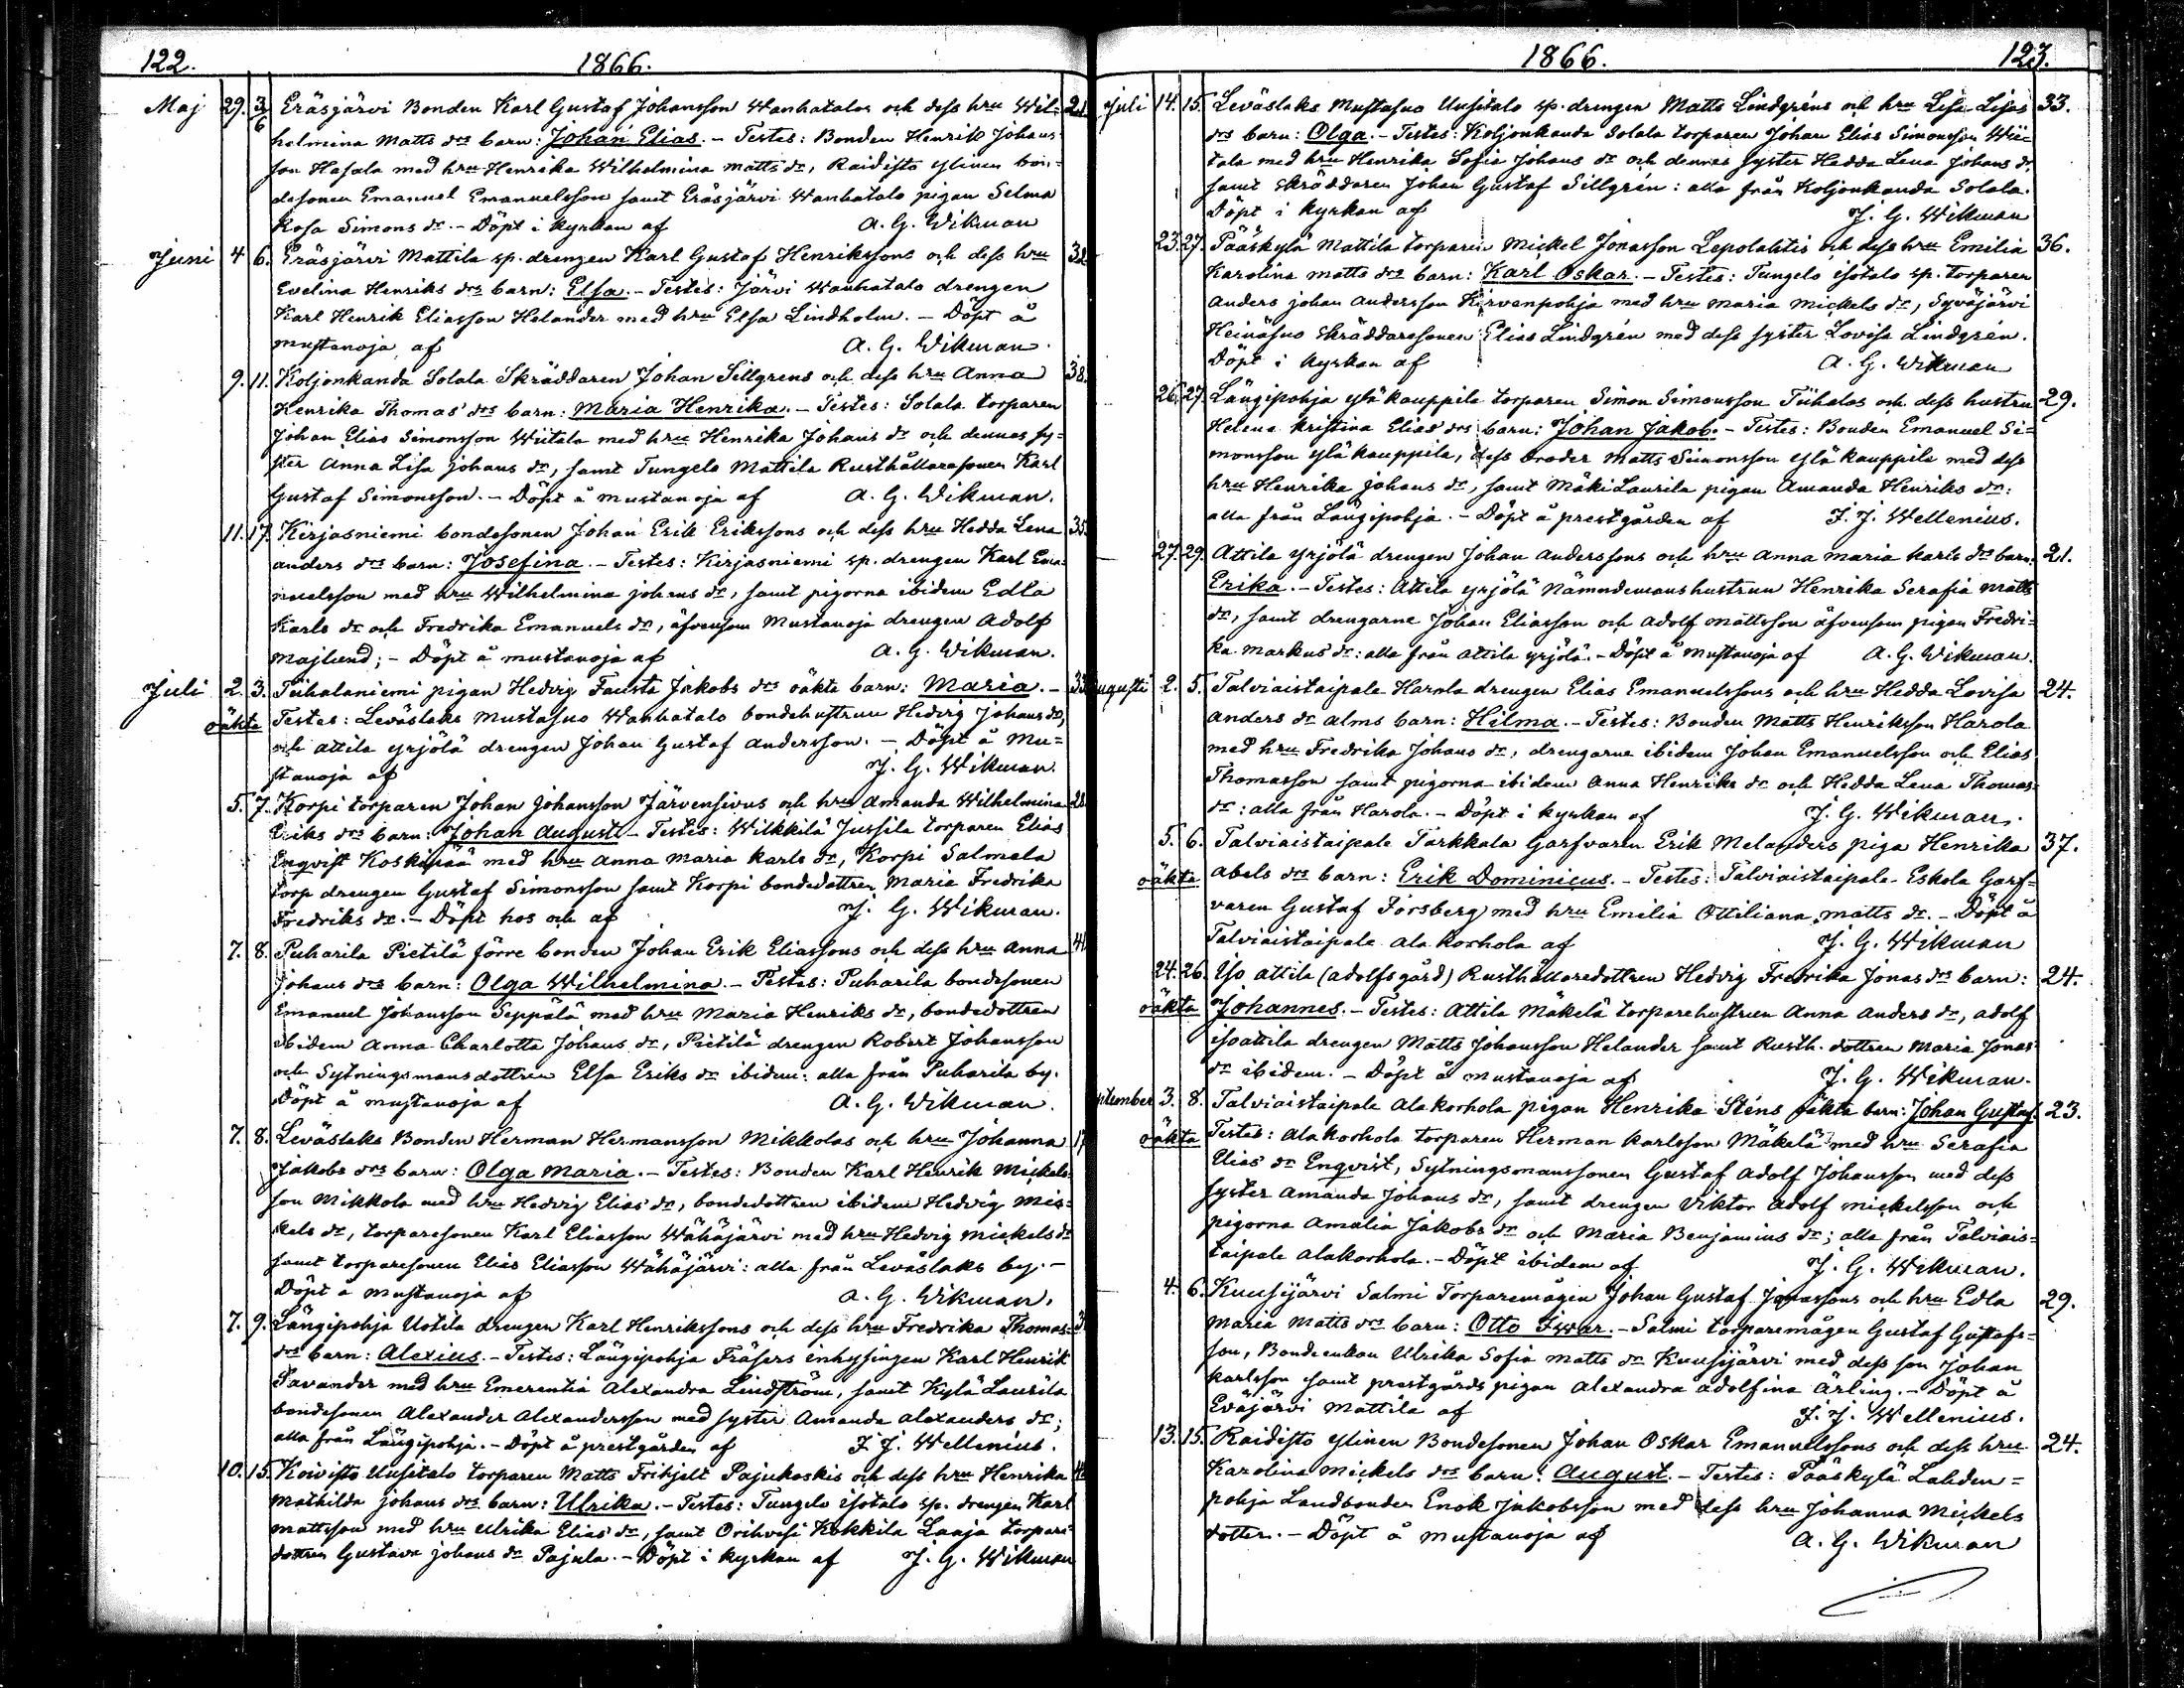 122. 1866.
Maj 29. 3/6 Eräsjärvi Bonden Karl Gustaf Johansson Wanhatalos och dess hru Wil= 21.
helmina Matts drs barn: Johan Elias. - Testes: Bonden Henrik Johans
son Hasala med hru Henrika Wilhelmina matts dr, Raidisto ylinen bon=
desonen Emanuel Emanuelsson samt Eräsjärvi Wanhatalo pigan Selma
Rosa Simons dr. - Döpt i kyrkan af A. G. Wikman
Juni 4 6. Eräsjärvi Mattila sp. drengen Karl Gustaf Henrikssons och dess hru 32
Evelina Henriks drs barn: Elsa. - Testes: Järvi Wanhatalo drengen
Karl Henrik Eliasson Helander med hru Elsa Lindholm. - Döpt å
mustanoja af A. G. Wikman.
9. 11. Koljonkanda Solala Skräddaren Johan Sillgrens och dess hru Anna 38.
Henrika Thomas drs barn: Maria Henrika. - Testes: Solala torparen
Johan Elias Simonsson Wiitala med hru Henrika Johans dr och dennes sy=
ster Anna Lisa Johans dr, samt Tungelo Mattila Rusthållaresonen Karl
Gustaf Simonsson. - Döpt å mustanoja af A. G. Wikman.
11. 17. Kirjasniemi bondesonen Johan Erik Erikssons och dess hru Hedda Lena 35
anders drs barn: Josefina. - Testes: Kirjasniemi sp. drengen Karl Ema=
nuelsson med hru Wilhelmina johans dr, samt pigorna ibidem Edla
Karls dr och Fredrika Emanuels dr, äfvensom Mustanoja drengen Adolf
Majlund; - Döpt å mustanoja af A. G. Wikman.
Juli 2. 3. Tiihalaniemi pigan Hedvig Fausta Jakobs drs oäkta barn: Maria. - 33
oäkta Testes: Leväslaks Mustasuo Wanhatalo bondehustrun Hedvig Johans dr,
och attila yrjölä drengen Johan Gustaf andersson. - Döpt å Mu=
stanoja af J. G. Wikman.
5. 7. Korpi torparen Johan Johansson Järvensivus och hru Amanda Wilhelmina 28
Eriks drs barn: Johan August - Testes: Wilkkilä Jussila torparen Elias
Enqvist Koskipää med hru Anna Maria Karls dr, Korpi Salmela
torp drengen Gustaf Simonsson samt Korpi bondedottren Maria Fredrika
Fredriks dr. - Döpt hos och af J. G. Wikman.
7. 8. Puharila Pietilä förre bonden Johan Erik Eliassons och dess hru Anna 41
Johans drs barn: Olga Wilhelmina. - Testes: Puharila bondesonen
Emanuel Johansson Seppälä med hru Maria Henriks dr, bondedottren
ibidem Anna Charlotta Johans dr, Pietilä drengen Robert Johansson
och Sytningsmansdottren Elsa Eriks dr ibidem: alla från Puharila by.
Döpt å mustanoja af A. G. Wikman.
7. 8. Leväslaks Bonden Herman Hermansson Mikkolas och hru Johanna 17
Jakobs drs barn: Olga Maria. - Testes: Bonden Karl Henrik Mickels=
son Mikkola med hru Hedvig Elias dr, bondedottren ibidem Hedvig Mic=
kels dr, torparesonen Karl Eliasson Wähäjärvi med hru Hedvig mickels dr
samt torparesonen Elias Eliasson Wähäjärvi: alla från Leväslaks by. -
Döpt å mustanoja af A. G. Wikman.
7. 9. Längipohja Uotila drengen Karl Henrikssons och dess hru Fredrika Thomas= 3
drs barn: Alexius. - Testes: Längipohja Fräsers inhysingen Karl Henrik
Savander med hru Emerentia Alexandra Lindström, samt Kylä Laurila
bondesonen Alexander Alexandersson med syster Amanda Alexanders dr;
alla från Längipohja. - Döpt å prestgården af J. J. Wellenius.
10. 15. Koivisto Uusitalo torparen Matts Frihjelt Pajukoskis och dess hru Henrika
Mathilda johans drs barn: Ulrika. - Testes: Tungelo isotalo sp. drengen Karl
mattsson med hru Ulrika Elias dr, samt Orihvesi Kokkila Laaja torpare=
dottren Gustava johans dr Pajula. - Döpt i kyrkan af J. G. Wikman
1866. 123.
Juli 14. 15. Leväslaks Mustasuo Uusitalo sp. drengen Matts Lindgréns och hru Lisa Lisas 33.
drs barn: Olga. - Testes: Koljonkanda Solala torparen Johan Elias Simonsson Wii=
tala med hru Henrika Sofia Johans dr och dennes syster Hedda Lena Johans dr
samt skräddaren Johan Gustaf Sillgrén: alla från Koljonkanda Solala.
Döpt i kyrkan af J. G. Wikman
23. 27. Pääskylä Mattila torparen Mickel Jonasson Lepolahtis och dess hru Emilia 36.
Karolina matts drs barn: Karl Oskar. - Testes: Tungelo isotalo sp. torparen
Anders Johan Andersson Kirvenpohja med hru Maria Mickels dr, Syväjärvi
Heinäsuo skräddaresonen Elias Lindgrén med dess syster Lovisa Lindgrén.
Döpt i kyrkan af A. G. Wikman
26. 27. Längipohja ylä kauppila torparen Simon Simonsson Tiihalas och dess hustru 29.
Helena Kristina Elias drs barn: Johan Jakob. - Testes: Bonden Emanuel Si=
monsson ylä kauppila, dess broder Matts Simonsson ylä kauppila med dess
hru Henrika johans dr, samt Mäki Laurila pigan Amanda Henriks dr:
alla från Längipohja. - Döpt å prestgården af J. J. Wellenius.
27. 29. Attila yrjölä drengen Johan Anderssons och hru Anna Maria Karls drs barn: 21.
Erika. - Testes: Attila yrjölä Nämndemanshustrun Henrika Serafia Matts
dr, samt drengarne Johan Eliasson och Adolf Mattsson äfvensom pigan Fredri=
ka Markus dr: alla från Attila yrjölä. - Döpt å mustanoja af A. G. Wikman.
Augusti 2. 5. Talviaistaipale Harola drengen Elias Emanuelssons och hru Hedda Lovisa 24.
Anders dr Alms barn: Hilma. - Testes: Bonden Matts Henriksson Harola
med hru Fredrika Johans dr, drengarne ibidem Johan Emanuelsson och Elias
Thomasson samt pigorna ibidem Anna Henriks dr och Hedda Lena Thomas=
dr: alla från Harola. - Döpt i kyrkan af J. G. Wikman.
5. 6. Talviaistaipale Tarkkala Garfvaren Erik Melanders piga Henrika 37.
oäkta Abels drs barn: Erik Dominicus. - Testes: Talviaistaipale Eskola Garf=
varen Gustaf Forsberg med hru Emilia Ottiliana matts dr. - Döpt å
Talviaistaipale Ala korhola af J. G. Wikman
24. 26. Iso attila (adolfsgård) Rusthållaredottren Hedvig Fredrika Jonas drs barn: 24.
oäkta Johannes. - Testes: Attila Mäkelä torparehustrun Anna Anders dr, adolf
isoattila drengen Matts Johansson Helander samt Rusth. dottren Maria Jonas
dr ibidem. - Döpt å mustanoja af J. G. Wikman.
September 3. 8. Talviaistaipale Ala korhola pigan Henrika Sténs oäkta barn: Johan Gustaf. 23.
oäkta Testes: Ala korhola torparen Herman Karlsson Mäkelä med hru Serafia
Elias dr Enqvist, Sytningsmanssonen Gustaf Adolf Johansson med dess
syster Amanda Johans dr, samt drengen Viktor Adolf Mickelsson och
pigorna Amalia Jakobs dr och Maria Benjamins dr; alla från Talviais=
taipale Alakorhola. - Döpt ibidem af J. G. Wikman.
4. 6. Kuusijärvi Salmi Torparemågen Johan Gustaf Jonassons och hru Edla 29.
Maria Matts drs barn: Otto Iwar. - Salmi torparemågen Gustaf Gustafs=
son, Bondeenkan Ulrika Sofia Matts dr Kuusijärvi med dess son Johan
Karlsson samt prestgårds pigan Alexandra Adolfina Ärling. - Döpt å
Eväjärvi Mattila af J. J. Wellenius.
13. 15. Raidisto ylinen Bondesonen Johan Oskar Emanuelssons och dess hru 24.
Karolina Mickels drs barn: August. - Testes: Pääskylä Lahden=
pohja Landbonden Enok Jakobsson med dess hru Johanna Mickels
dotter. - Döpt å mustanoja af A. G. Wikman